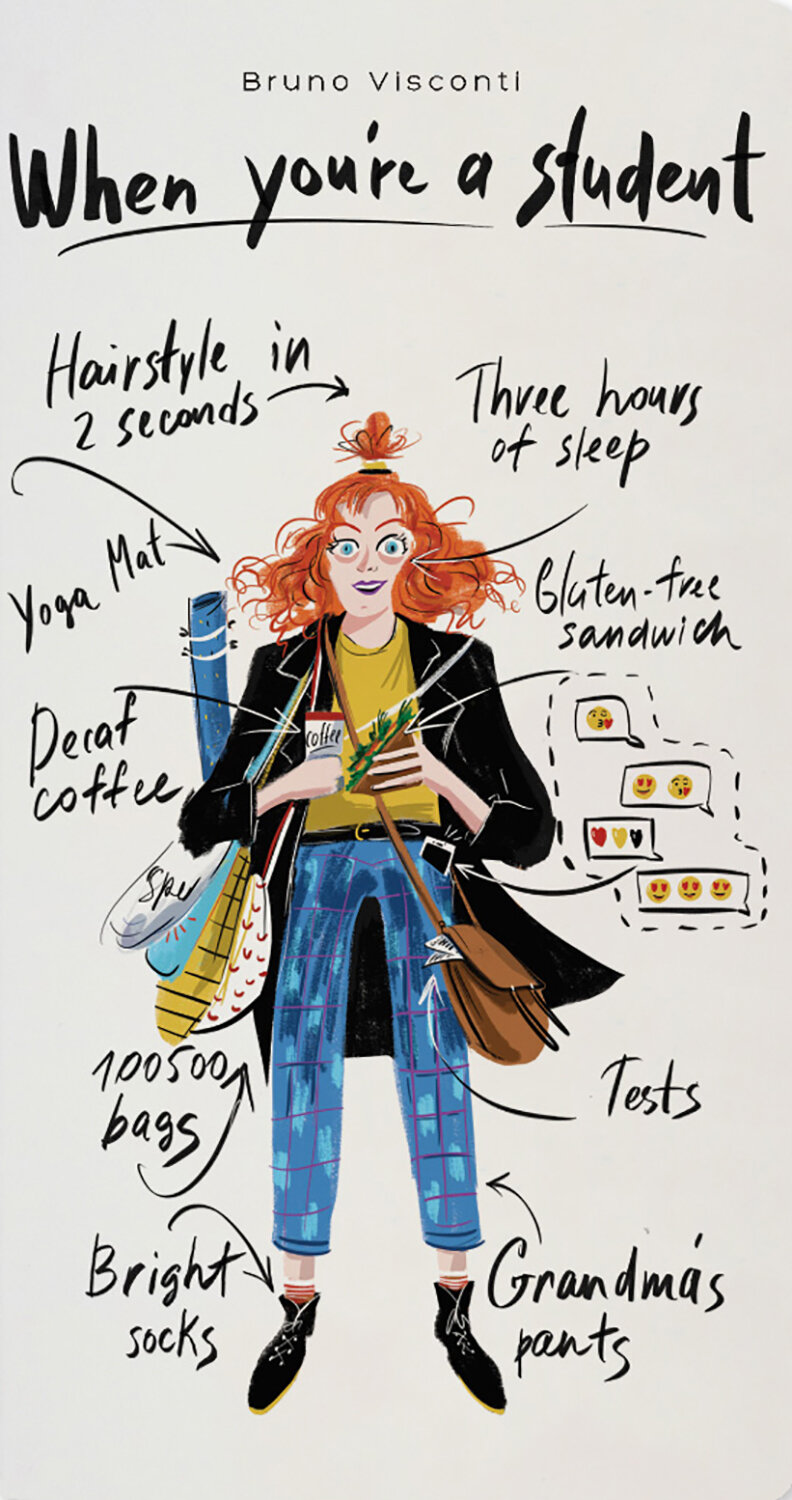 Bruno Visconti
When you're a student
Hairstyle in
2 seconds
Three hours
of sleep
Yoga Mat
Gluten-free
sandwich
Decaf
coffee
coffee
Spe
100500
bags
Tests
Bright
socks
Grandma's
pants